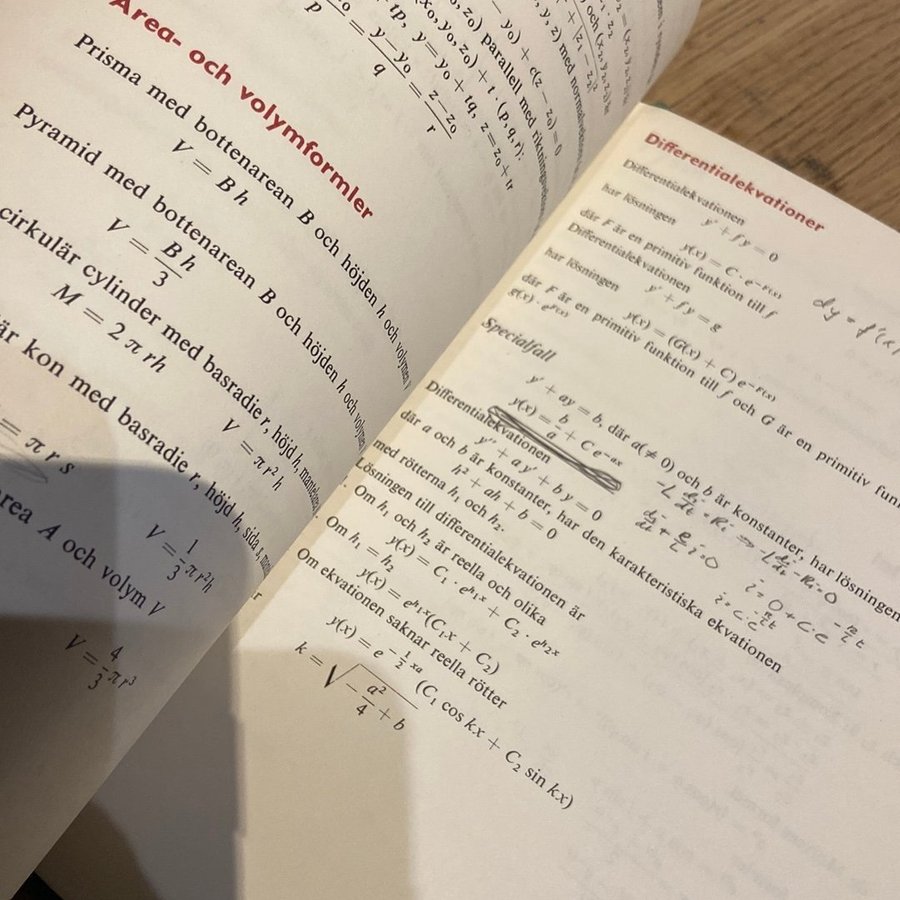 y₀) + c(z − z₀) = 0
(x₀, y₀, z₀) parallell med
(x₀, y₀, z₀) + t · (p, q, r):
tp, y = y₀ + tq, z = z₀ + tr
y − y₀ = z − z₀
p q r
Area- och volymformler
Prisma med bottenarean B och höjden h och volymen
V = Bh
Pyramid med bottenarean B och höjden h och
V = Bh/3
cirkulär cylinder med basradie r, höjd h,
M = 2πrh
V = πr²h
kon med basradie r, höjd h, sida s,
= πrs
V = 1/3 πr²h
area A och volym V
V = 4/3 πr³
Differentialekvationer
Differentialekvationen
y′ + fy = 0
har lösningen
y(x) = C · e^−F(x)
där F är en primitiv funktion till f
Differentialekvationen
y′ + fy = g
har lösningen
y(x) = (G(x) + C) e^−F(x)
där F är en primitiv funktion till f och G är en primitiv
g(x) · e^F(x)
Specialfall
y′ + ay = b, där a(≠ 0) och b är konstanter, har lösningen
y(x) = b/a + C e^−ax
Differentialekvationen
y″ + ay′ + by = 0
där a och b är konstanter, har den karakteristiska ekvationen
h² + ah + b = 0
med rötterna h₁ och h₂.
Lösningen till differentialekvationen är
Om h₁ och h₂ är reella och olika
y(x) = C₁ · e^h₁x + C₂ · e^h₂x
Om h₁ = h₂
y(x) = e^h₁x(C₁x + C₂)
Om ekvationen saknar reella rötter
y(x) = e^−1/2 xa (C₁ cos kx + C₂ sin kx)
k = √(−a²/4 + b)
dy = f′(x)
-L di/dt = Ri ⇒ -L di/dt - Ri = 0
di/dt + R/L i = 0